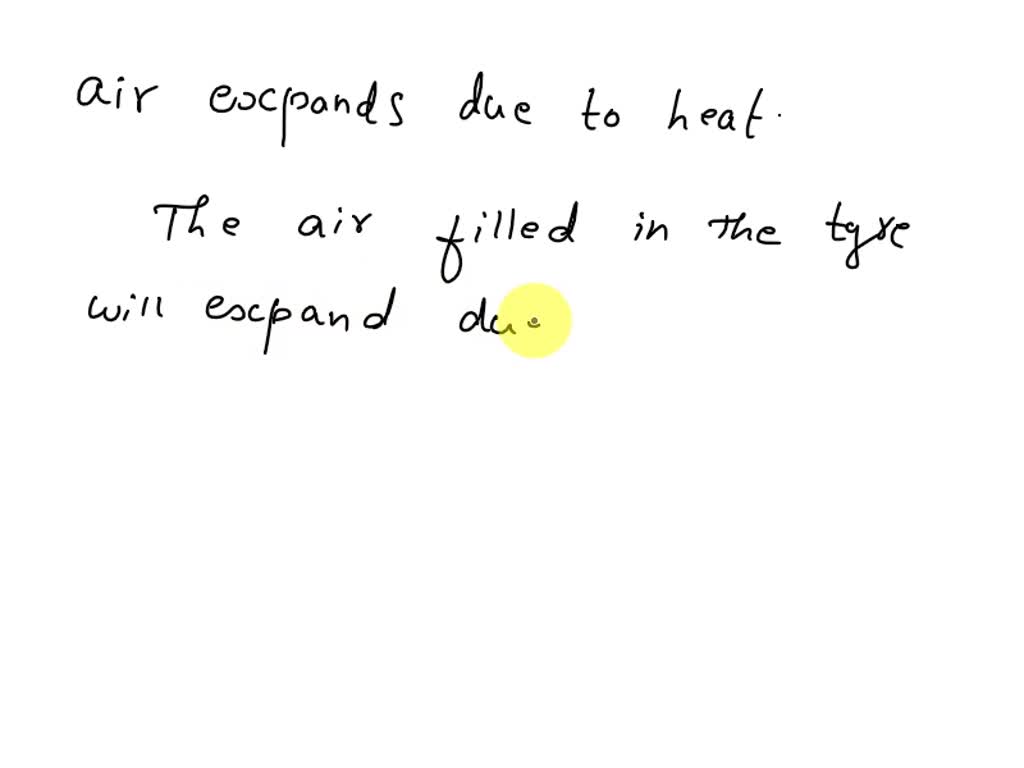 air expands due to heat.
The air filled in the tyre
will expand due